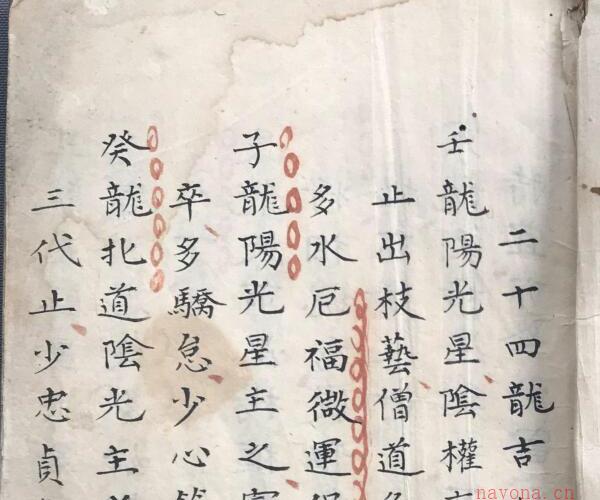 二十四龍吉
壬龍陽光星陰權
止出枝藝僧道
多水厄福微運
子龍陽光星主之
卒多驕怠少心
癸龍北道陰光主
三代止少忠貞
navona.cn